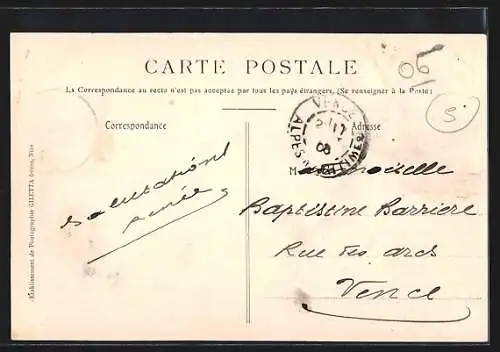 CARTE POSTALE
06
La Correspondance au recto n'est pas acceptée par tous les pays étrangers. (Se renseigner à la Poste)
5
Correspondance
Adresse
VENCE
ALPES MARITIMES
Mademoiselle
Salutations
Baptistine Barrière
Rue des arcs
Vence
Etablissement de Photographie GILETTA frères, Nice